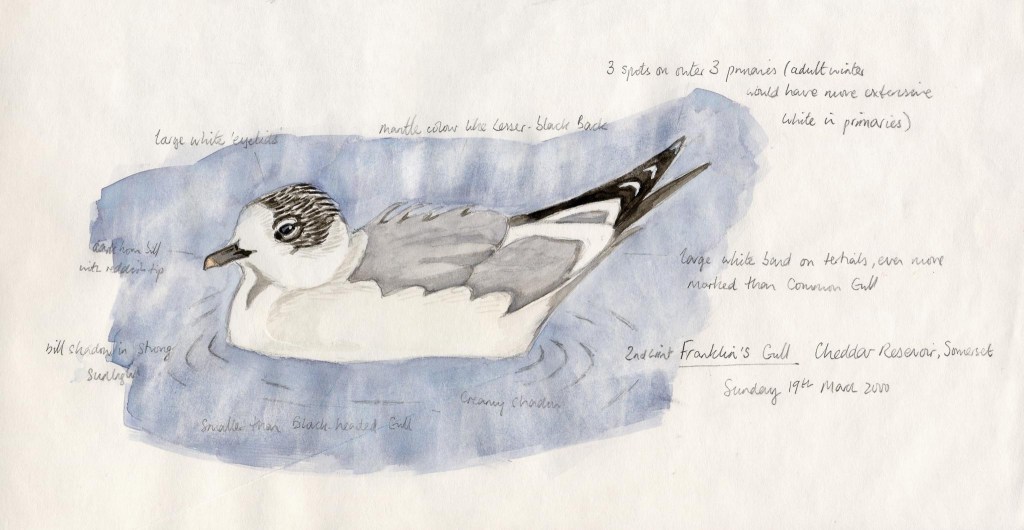 3 spots on outer 3 primaries (adult winter
would have more extensive
white in primaries)
large white 'eyelids'
mantle colour like Lesser-black Back
dark horn bill
with reddish tip
large white band on tertials, even more
marked than Common Gull
bill shadow in strong
sunlight
2nd wint Franklin's Gull Cheddar Reservoir, Somerset
Sunday 19th March 2000
creamy shadow
smaller than Black-headed Gull